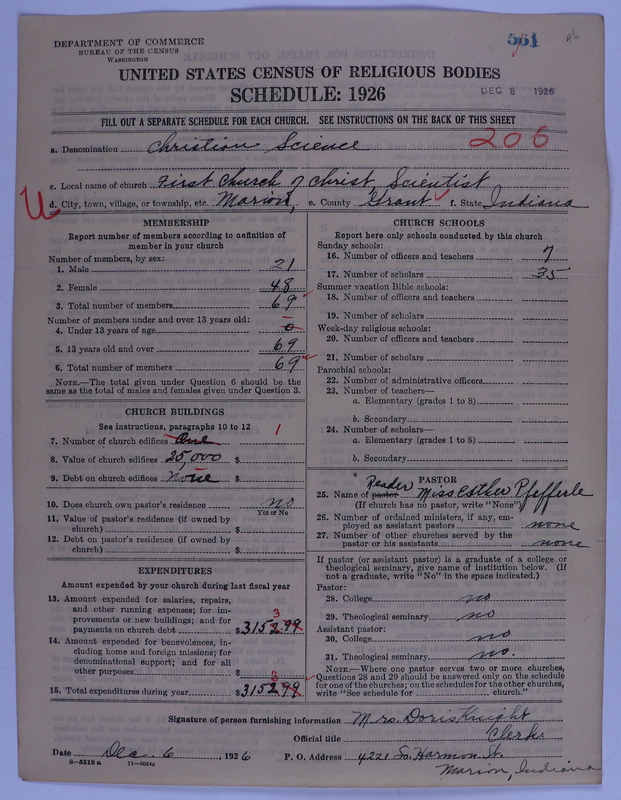 DEPARTMENT OF COMMERCE
BUREAU OF THE CENSUS
WASHINGTON
561
96
UNITED STATES CENSUS OF RELIGIOUS BODIES
SCHEDULE: 1926
DEC 8 1926
FILL OUT A SEPARATE SCHEDULE FOR EACH CHURCH. SEE INSTRUCTIONS ON THE BACK OF THIS SHEET
206
a. Denomination Christian Science
c. Local name of church First Church of Christ, Scientist
U
d. City, town, village, or township, etc. Marion, e. County Grant f. State Indiana
MEMBERSHIP
Report number of members according to definition of
member in your church
Number of members, by sex:
1. Male 21
2. Female 48
3. Total number of members 69
Number of members under and over 13 years old:
4. Under 13 years of age 0
5. 13 years old and over 69
6. Total number of members 69
NOTE.—The total given under Question 6 should be the
same as the total of males and females given under Question 3.
CHURCH BUILDINGS
See instructions, paragraphs 10 to 12
7. Number of church edifices One 1
8. Value of church edifices 25,000 $
9. Debt on church edifices none $
10. Does church own pastor's residence no
Yes or No
11. Value of pastor's residence (if owned by
church) $
12. Debt on pastor's residence (if owned by
church) $
EXPENDITURES
Amount expended by your church during last fiscal year
13. Amount expended for salaries, repairs,
and other running expenses; for im-
provements or new buildings; and for
payments on church debt $ 3152.99 3
14. Amount expended for benevolences, in-
cluding home and foreign missions; for
denominational support; and for all
other purposes $
15. Total expenditures during year $ 3152.99 3
CHURCH SCHOOLS
Report here only schools conducted by this church
Sunday schools:
16. Number of officers and teachers 7
17. Number of scholars 35
Summer vacation Bible schools:
18. Number of officers and teachers
19. Number of scholars
Week-day religious schools:
20. Number of officers and teachers
21. Number of scholars
Parochial schools:
22. Number of administrative officers
23. Number of teachers—
a. Elementary (grades 1 to 8)
b. Secondary
24. Number of scholars—
a. Elementary (grades 1 to 8)
b. Secondary
PASTOR
Reader
25. Name of pastor Miss Esther Pfefferle
(If church has no pastor, write "None")
26. Number of ordained ministers, if any, em-
ployed as assistant pastors none
27. Number of other churches served by the
pastor or his assistants none
If pastor (or assistant pastor) is a graduate of a college or
theological seminary, give name of institution below. (If
not a graduate, write "No" in the space indicated.)
Pastor:
28. College no
29. Theological seminary no
Assistant pastor:
30. College no
31. Theological seminary no.
NOTE.—Where one pastor serves two or more churches,
Questions 28 and 29 should be answered only on the schedule
for one of the churches; on the schedules for the other churches,
write "See schedule for church."
Signature of person furnishing information Mrs. Doris Knight
Official title Clerk.
Date Dec 6, 1926 P. O. Address 4221 So. Harmon St.
8—5518a 11—9024a
Marion, Indiana